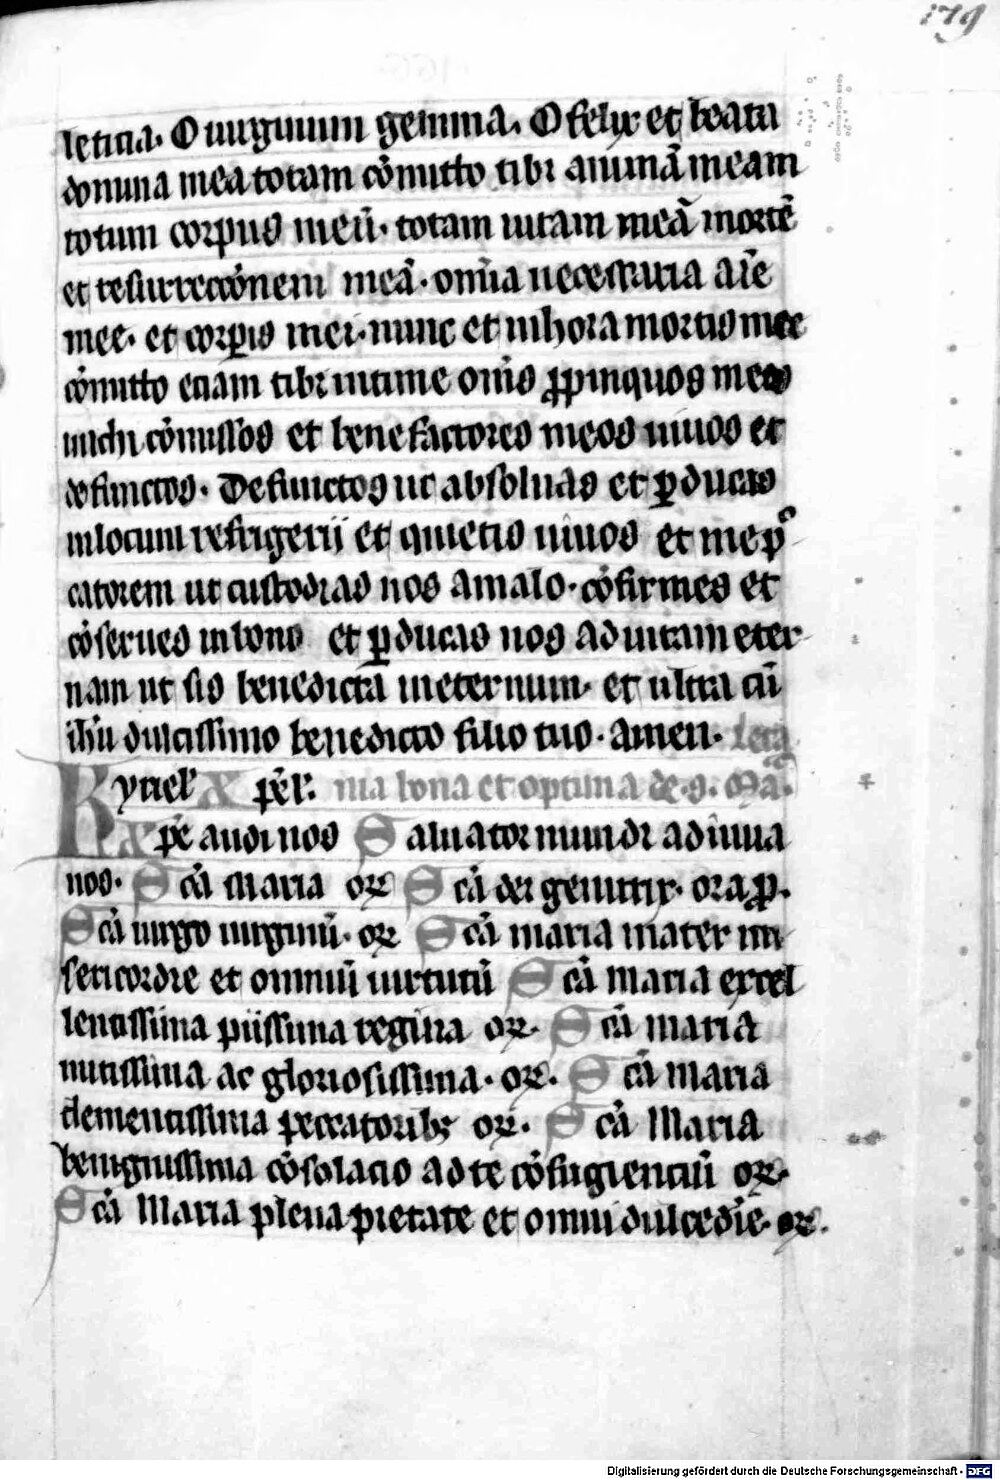 179
leticia. O uirginum gemma. O felix et beata
domina mea totam cõmitto tibi animã meam
totum corpus meũ. totam uitam meã mortẽ
et resurrecciõnem meã. omĩa necessaria aĩe
mee. et corꝑis mei. nunc et in hora mortis mee
cõmitto eciam tibi intime om̃s ꝓpinquos meos
michi cõmissos et benefactores meos uiuos et
defunctos. Defunctos ut absoluas et ꝑducas
in locum refrigerii et quietis uiuos et me p
catorem ut custodias nos a malo. cõfirmes et
cõserues in bono et ꝑducas nos ad uitam eter
nam ut sis benedictã in eternum. et ultra cũ
ihũ dulcissimo benedicto filio tuo. amen. Leta
Kyriel' xpel'. nia bona et optima de .s. Ma.
Xpe audi nos Saluator mundi adiuua
nos. Scã maria or̃ Scã dei genitrix. ora ꝓ.
Scã uirgo uirginũ. or̃ Scã maria mater mi
sericordie et omniũ uirtutũ Scã maria excel
lentissima piissima regina or̃. Scã maria
mitissima ac gloriosissima. or̃. Scã maria
clementissima peccatoribꝫ or̃. Scã Maria
benignissima cõsolacio ad te cõfugienciũ or̃.
Scã Maria plena pietate et omni dulcedĩe. or̃.
Digitalisierung gefördert durch die Deutsche Forschungsgemeinschaft - DFG